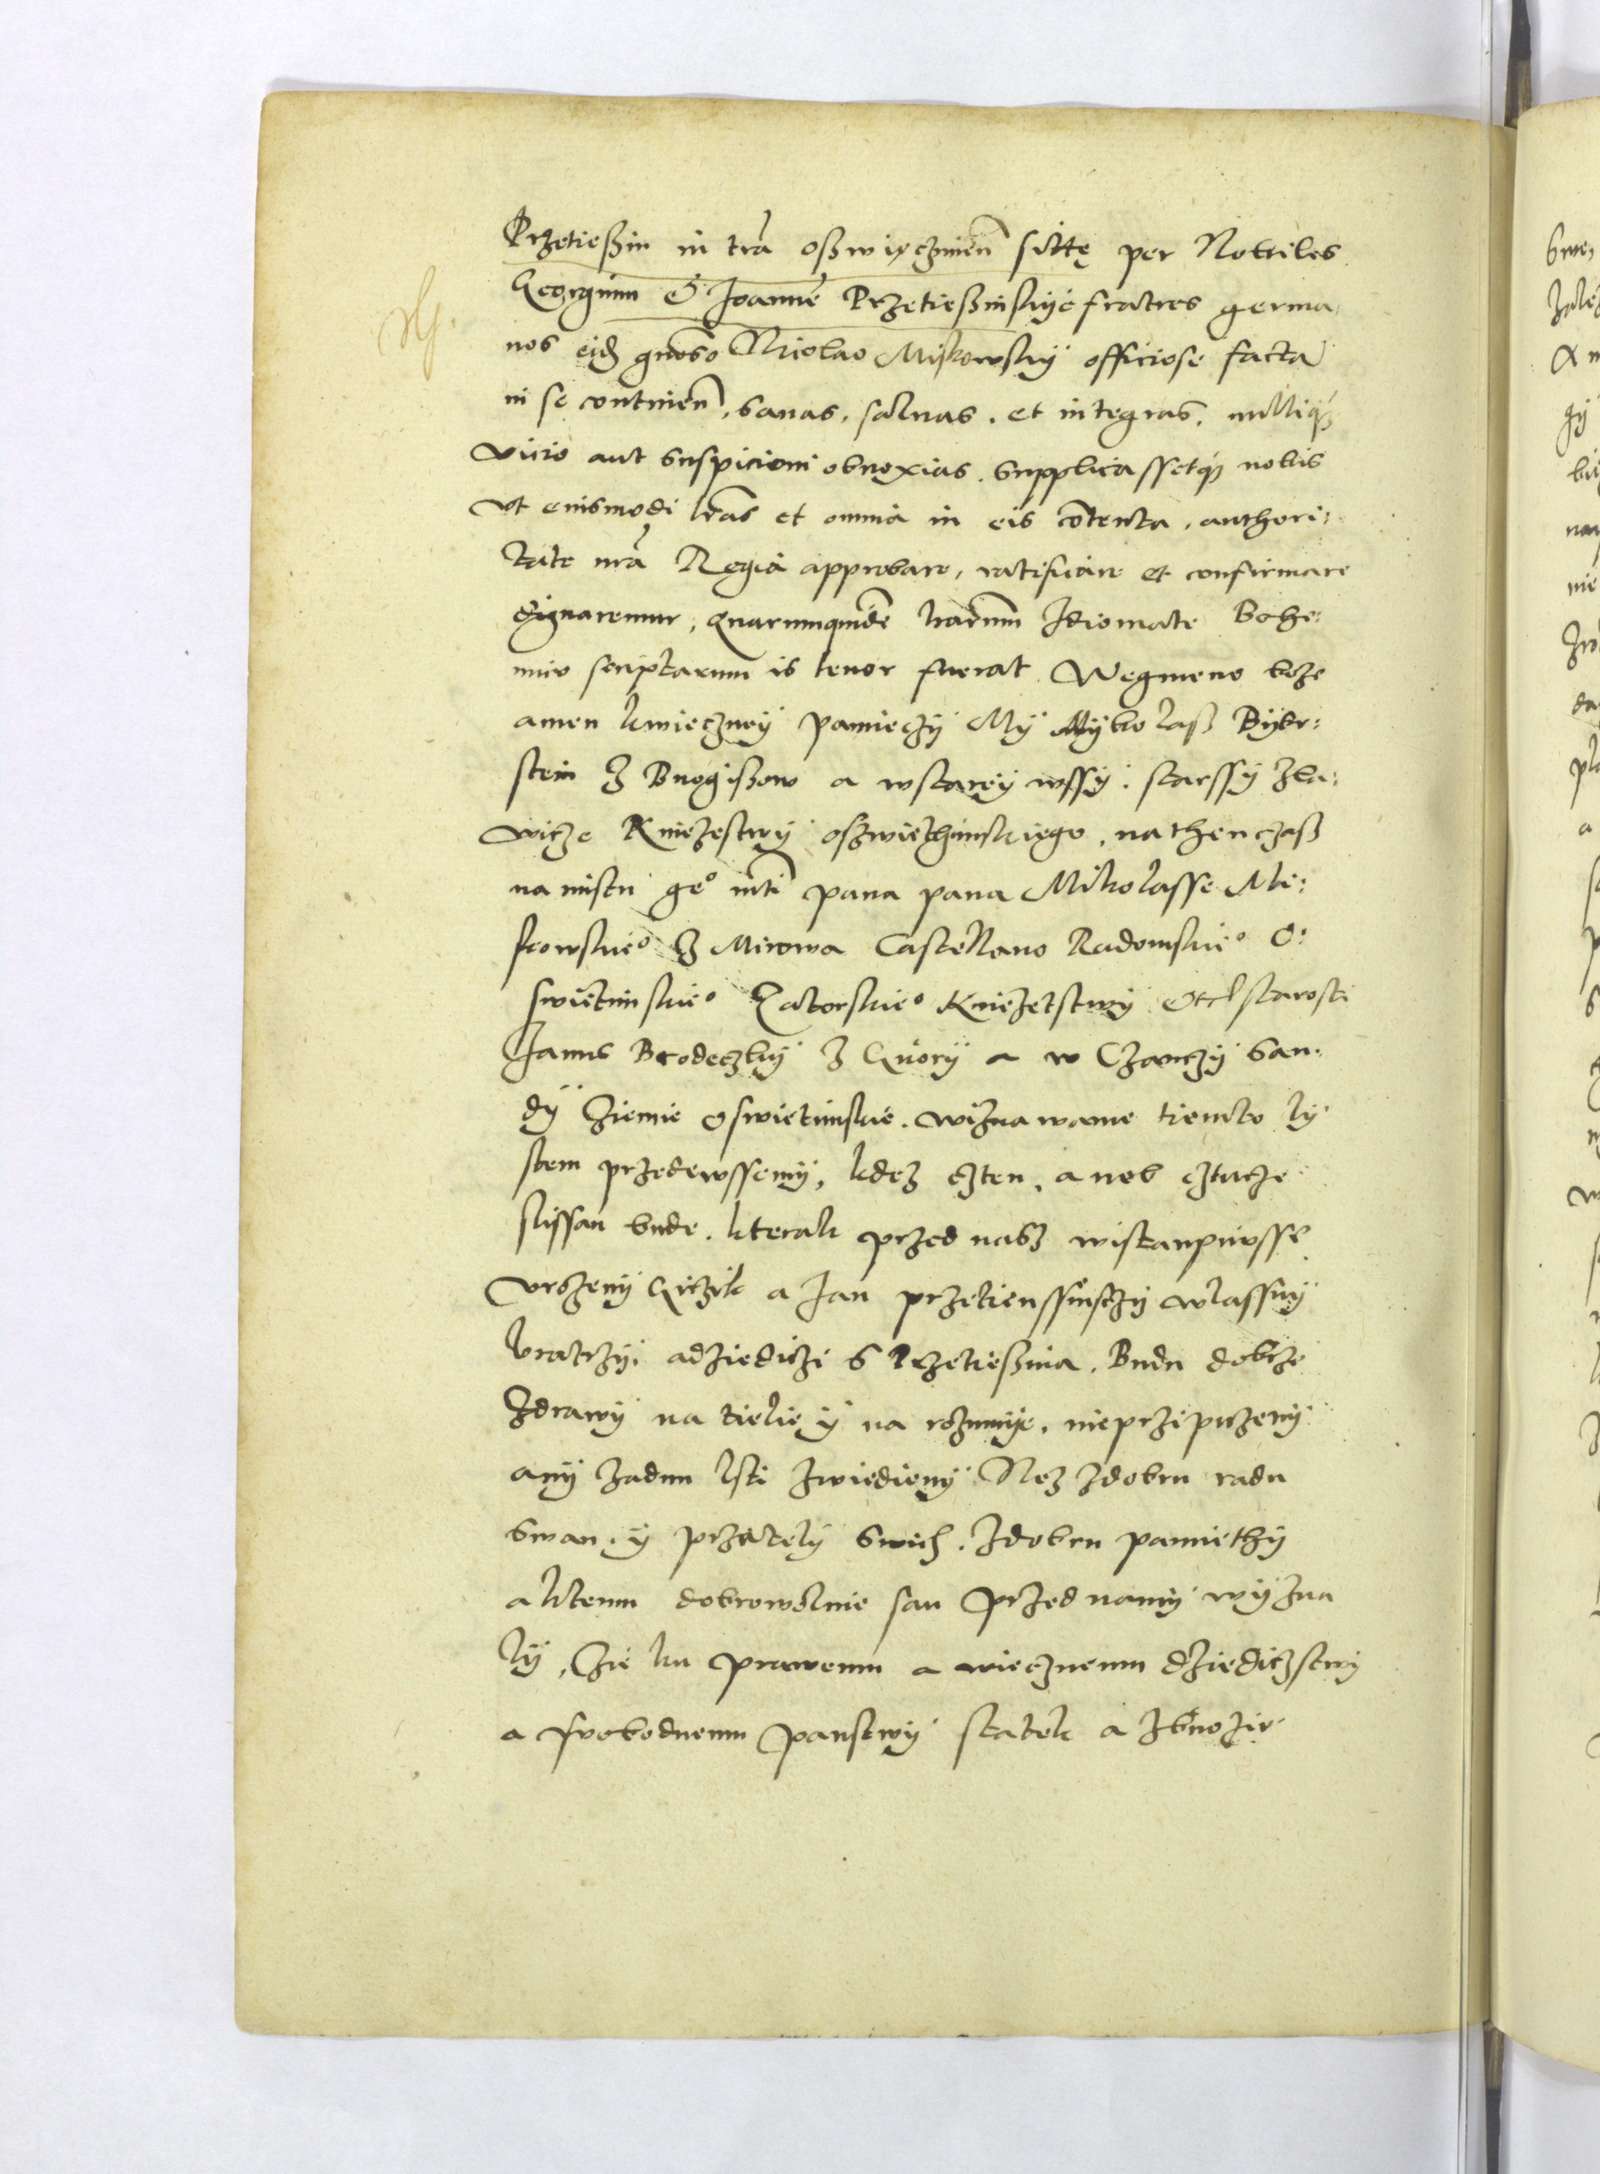 Przetießin in tra oßwięczimen sittę per Nobiles
Georgium & Joannē Przetießinskÿc fratres germa
nos eidē gnoso Nicolao Miskowskÿ officiose facta
in se continen, sanas, saluas, et integras, nulliq3
vicio aut suspicioni obnoxias, supplicassetq3 nobis
vt eiusmodi lras et omnia in eis cōtenta, authori:
tate nra Regia approbare, ratificare et confirmare
dignaremur, Quarumquidē lrarum Idiomate Bohe:
mico scriptarum is tenor fuerat. Wegmeno boze
amen kwiecznej pamieczÿ Mÿ Mÿkolaß Bÿbr:
stein z Buogißow a wstarej wssÿ, starssÿ zla:
wicze Kniezestwÿ oßwiethimskiego, na then czaß
na mistu ge° mti pana pana Mikolasse Mi:
skowskie° z Mirowa Castellano Radomskie° O:
swietimskie° Zatorskie° Kniezetstwÿ Etc starosti
Janus Brodeczkÿ z Gworÿ a w Czanczÿ San:
dÿ Ziemie Oswietimske. wiznawame tiemto lÿ
stem przedewssemÿ, kdez czten, a neb cztucze
slissan bude. kterak przed nasz wistanpiwsse
vrozenÿ Girzik a Jan przetienssinsczÿ wlassnÿ
bratrzÿ, adziedicze s Przetießina. Budu dobrze
zdrawÿ na tielie ÿ na rozumÿe, nieprzipuzenÿ
anÿ zadnu lsti zwiedienÿ Nez zdobru radu
swan, ÿ przatelÿ swich, zdobru pamiethÿ
a ktemu dobrowolnie sau przed namÿ wÿzna
lÿ, Zie ku prawemu a wiecznemu dziedicztwÿ
a swobodnemu panstwÿ statek a zbnozie